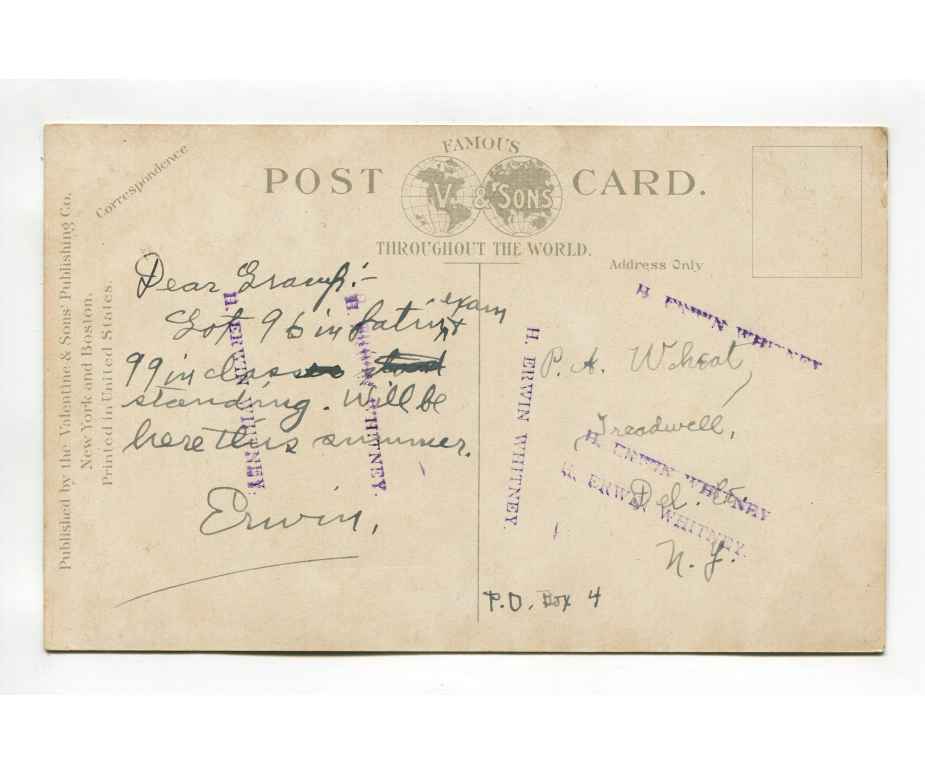 FAMOUS
POST CARD.
V. & SONS
THROUGHOUT THE WORLD.
Correspondence
Address Only
Published by the Valentine & Sons' Publishing Co.
New York and Boston.
Printed in United States.
Dear Gramp:-
exam
Got 96 in Latin
99 in class
standing. Will be
here this summer.
Erwin.
P. A. Wheat,
Treadwell,
Del. Co.
N. Y.
P.O. Box 4
H. ERWIN WHITNEY.
H. ERWIN WHITNEY.
H. ERWIN WHITNEY.
H. ERWIN WHITNEY
H. ERWIN WHITNEY
H. ERWIN WHITNEY.